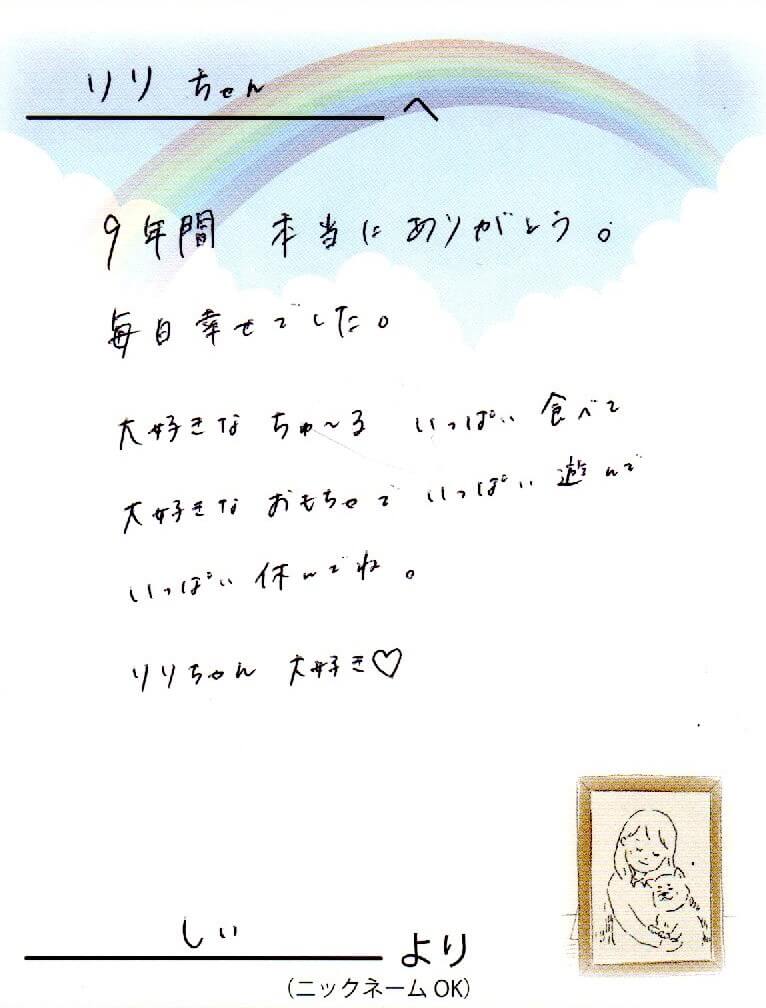 リリちゃん へ
9年間 本当にありがとう。
毎日幸せでした。
大好きなちゅ~る いっぱい 食べて
大好きな おもちゃで いっぱい 遊んで
いっぱい 休んでね。
リリちゃん 大好き♡
しい より
(ニックネームOK)